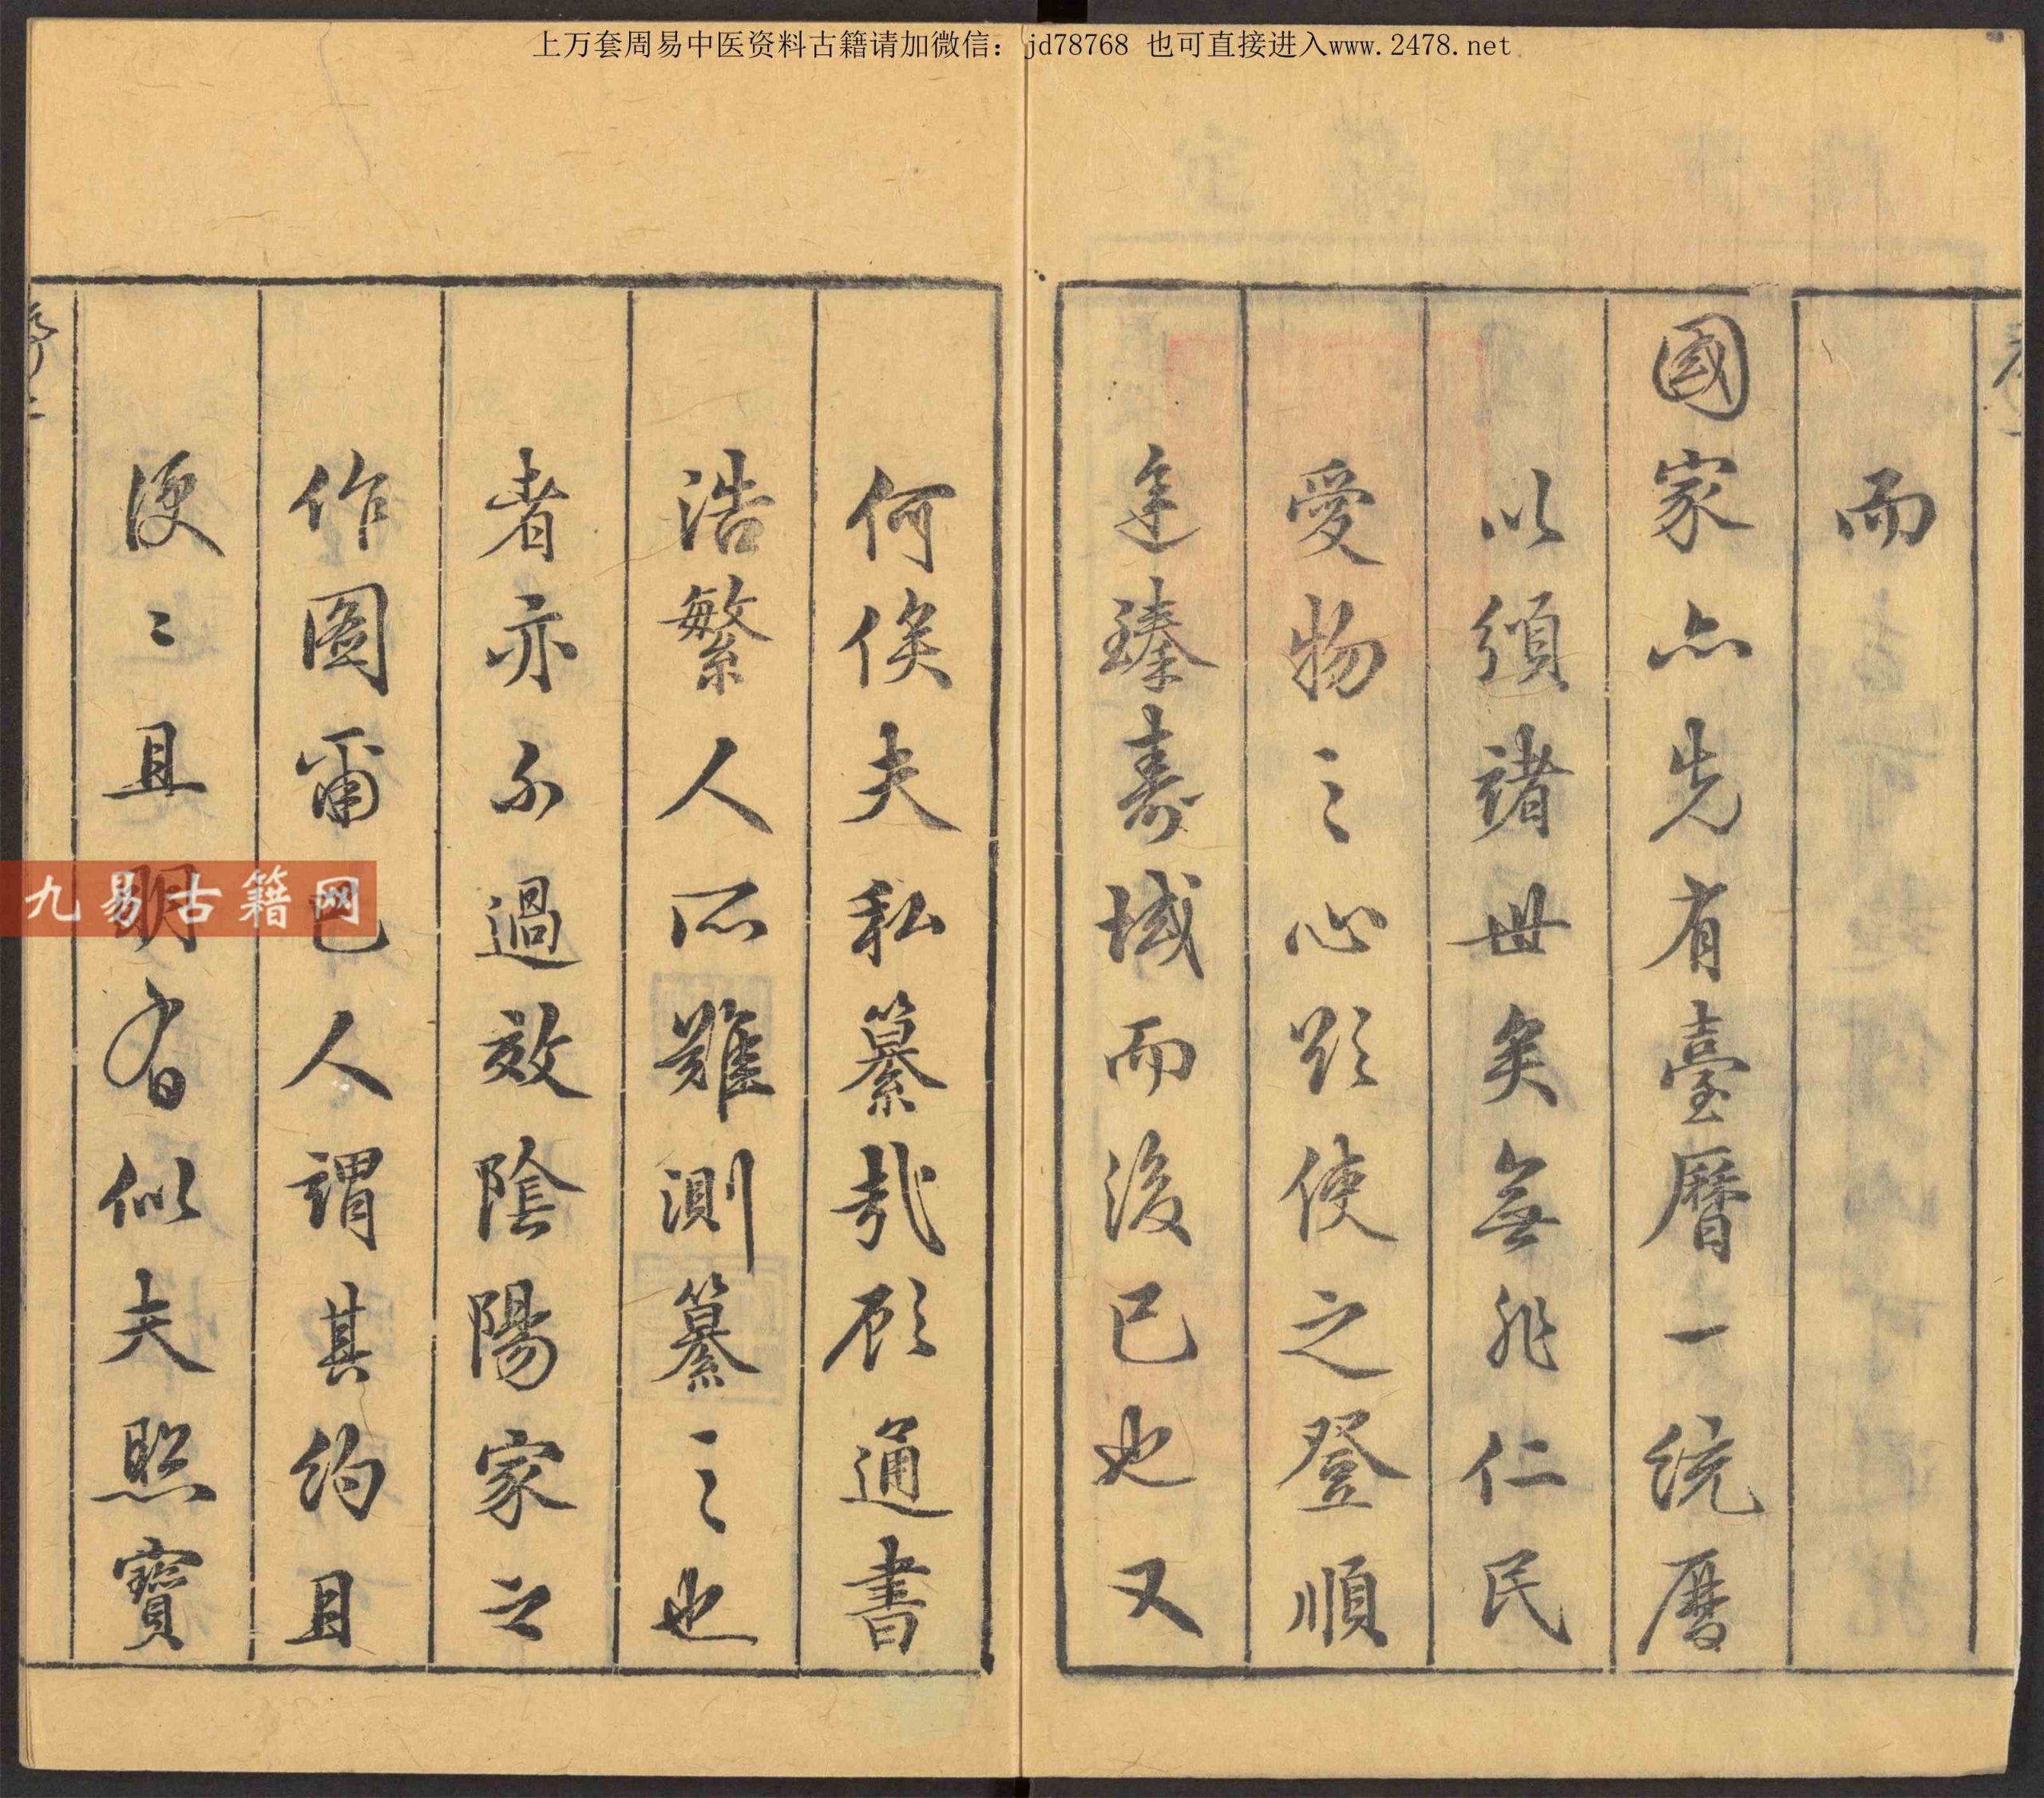 上万套周易中医资料古籍请加微信：jd78768 也可直接进入www.2478.net
而
國家亦先有臺曆一統曆
以頒諸世矣無非仁民
愛物之心欲使之登順
達臻壽域而後已也又
何俟夫私纂哉顧通書
浩繁人所難測纂之也
者亦不過效陰陽家之
作圖甫已人謂其約且
便〻且明有似夫照寶
序二
九易古籍网